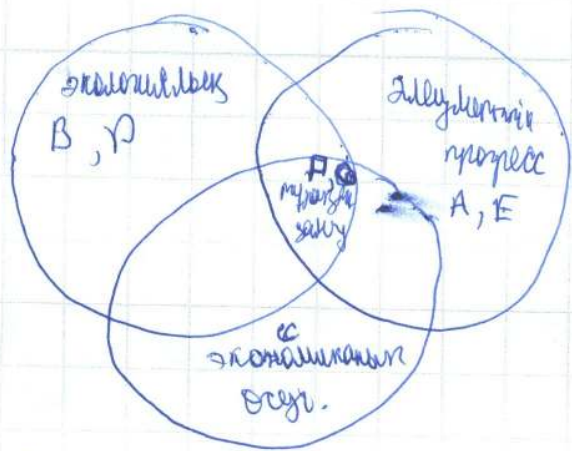 экологиялық
B, D
Әлеуметтік
прогресс
A, E
тұрақты
даму
C
экономиканың
өсуі.